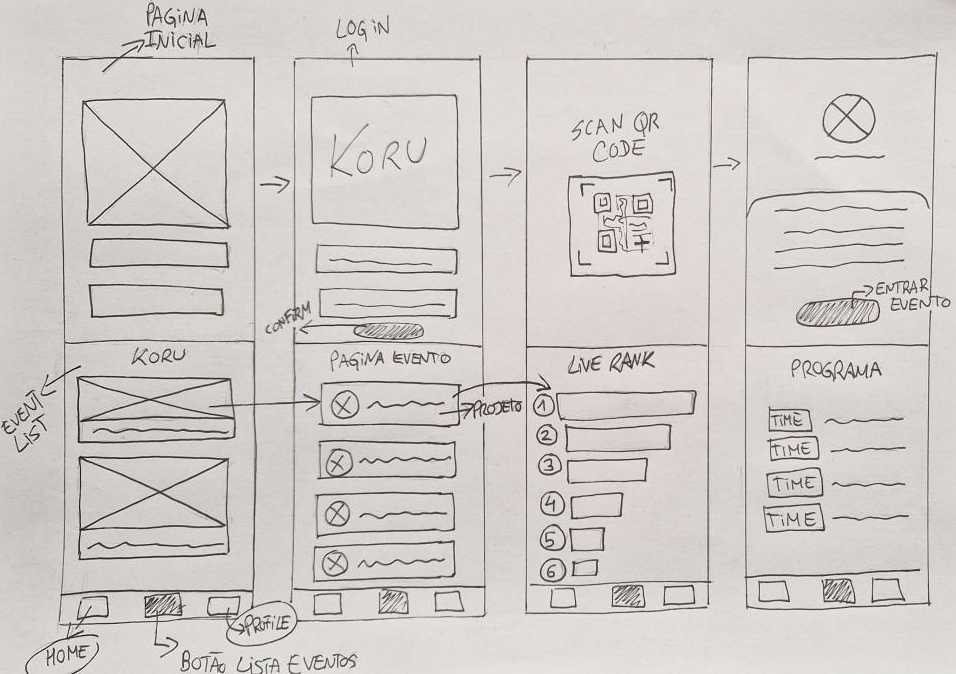 PAGINA
INICIAL
LOGIN
KORU
CONFIRM
SCAN QR
CODE
ENTRAR
EVENTO
KORU
EVENT
LIST
PAGINA EVENTO
PROJETO
LIVE RANK
1
2
3
4
5
6
PROGRAMA
TIME
TIME
TIME
TIME
HOME
BOTÃO LISTA EVENTOS
PROFILE